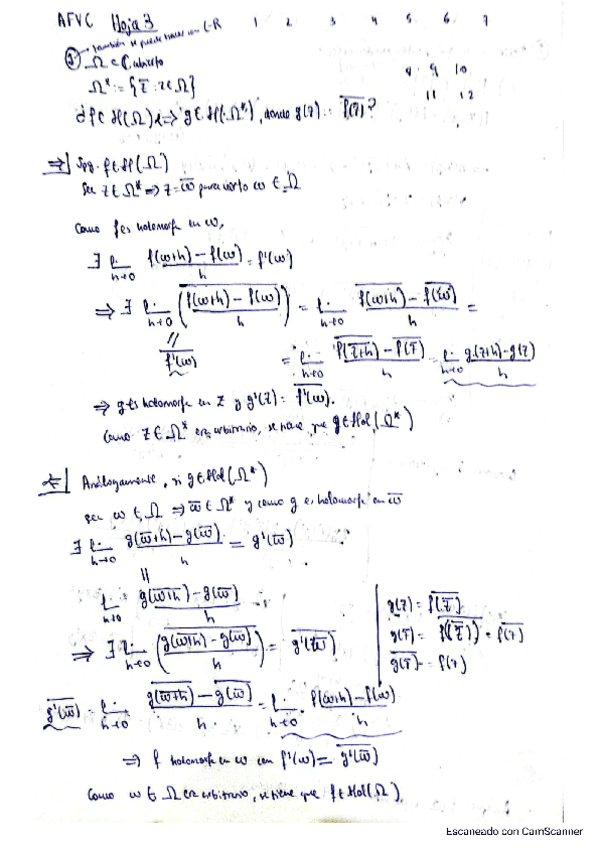 AFVC Hoja 3 1 2 3 4 5 6 7
también se puede hacer con C-R
8 9 10
② Ω ⊂ ℂ abierto
11 12
Ω* := {z̄ : z ∈ Ω}
¿f ∈ H(Ω) ⟺ g ∈ H(Ω*), donde g(z) = \overline{f(z̄)}?
⇒| Sup. f ∈ H(Ω)
Sea z ∈ Ω* ⇒ z = w̄ para cierto w ∈ Ω
Como f es holomorfa en w,
∃ lim_{h→0} (f(w+h) − f(w))/h = f'(w)
⇒ ∃ lim_{h→0} \overline{((f(w+h) − f(w))/h)} = lim_{h→0} (\overline{f(w+h)} − \overline{f(w)})/h =
\overline{f'(w)} = lim_{h→0} (\overline{f(\overline{z+h})} − \overline{f(z̄)})/h = lim_{h→0} (g(z+h) − g(z))/h
⇒ g es holomorfa en z y g'(z) = \overline{f'(w)}.
Como z ∈ Ω* era arbitrario, se tiene que g ∈ Hol(Ω*)
⇐| Análogamente, si g ∈ Hol(Ω*)
sea w ∈ Ω ⇒ w̄ ∈ Ω* y como g es holomorfa en w̄
∃ lim_{h→0} (g(w̄+h) − g(w̄))/h = g'(w̄)
lim_{h→0} (g(\overline{w+h}) − g(w̄))/h
⇒ ∃ lim_{h→0} \overline{((g(\overline{w+h}) − g(w̄))/h)} = \overline{g'(w̄)}
g(z) = \overline{f(z̄)}
g(z̄) = \overline{f(\overline{(z̄)})} = \overline{f(z)}
\overline{g(z̄)} = f(z)
\overline{g'(w̄)} = lim_{h→0} (\overline{g(\overline{w+h})} − \overline{g(w̄)})/h = lim_{h→0} (f(w+h) − f(w))/h
⇒ f holomorfa en w con f'(w) = \overline{g'(w̄)}
Como w ∈ Ω era arbitrario, se tiene que f ∈ Hol(Ω).
Escaneado con CamScanner